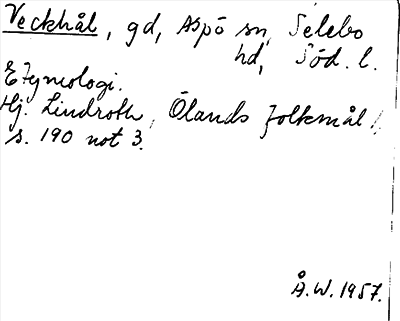 Veckhål, gd, Aspö sn, Selebo
hd, Söd. l.
Etymologi.
Hj. Lindroth, Ölands folkmål 1.
s. 190 not 3.
Å.W. 1957.